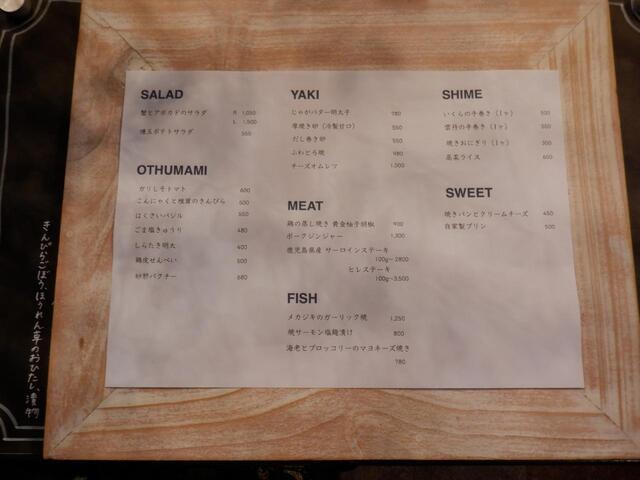 SALAD
蟹とアボカドのサラダ R 1,050
L 1,500
燻玉ポテトサラダ 550
OTHUMAMI
ガリしそトマト 600
こんにゃくと椎茸のきんぴら 500
はくさいバジル 550
ごま塩きゅうり 480
しらたき明太 400
鶏皮せんべい 500
砂肝パクチー 680
YAKI
じゃがバター明太子 780
厚焼き卵(冷製甘口) 550
だし巻き卵 550
ふわとろ焼 480
チーズオムレツ 1,500
MEAT
鶏の蒸し焼き 黄金柚子胡椒 900
ポークジンジャー 1,300
鹿児島県産 サーロインステーキ
100g~2800
ヒレステーキ
100g~3,500
FISH
メカジキのガーリック焼 1,250
焼サーモン塩麹漬け 800
海老とブロッコリーのマヨネーズ焼き
780
SHIME
いくらの手巻き(1ヶ) 500
雲丹の手巻き(1ヶ) 550
焼きおにぎり(1ヶ) 300
高菜ライス 600
SWEET
焼きパンとクリームチーズ 450
自家製プリン 500
きんぴらごぼう、ほうれん草のおひたし、漬物